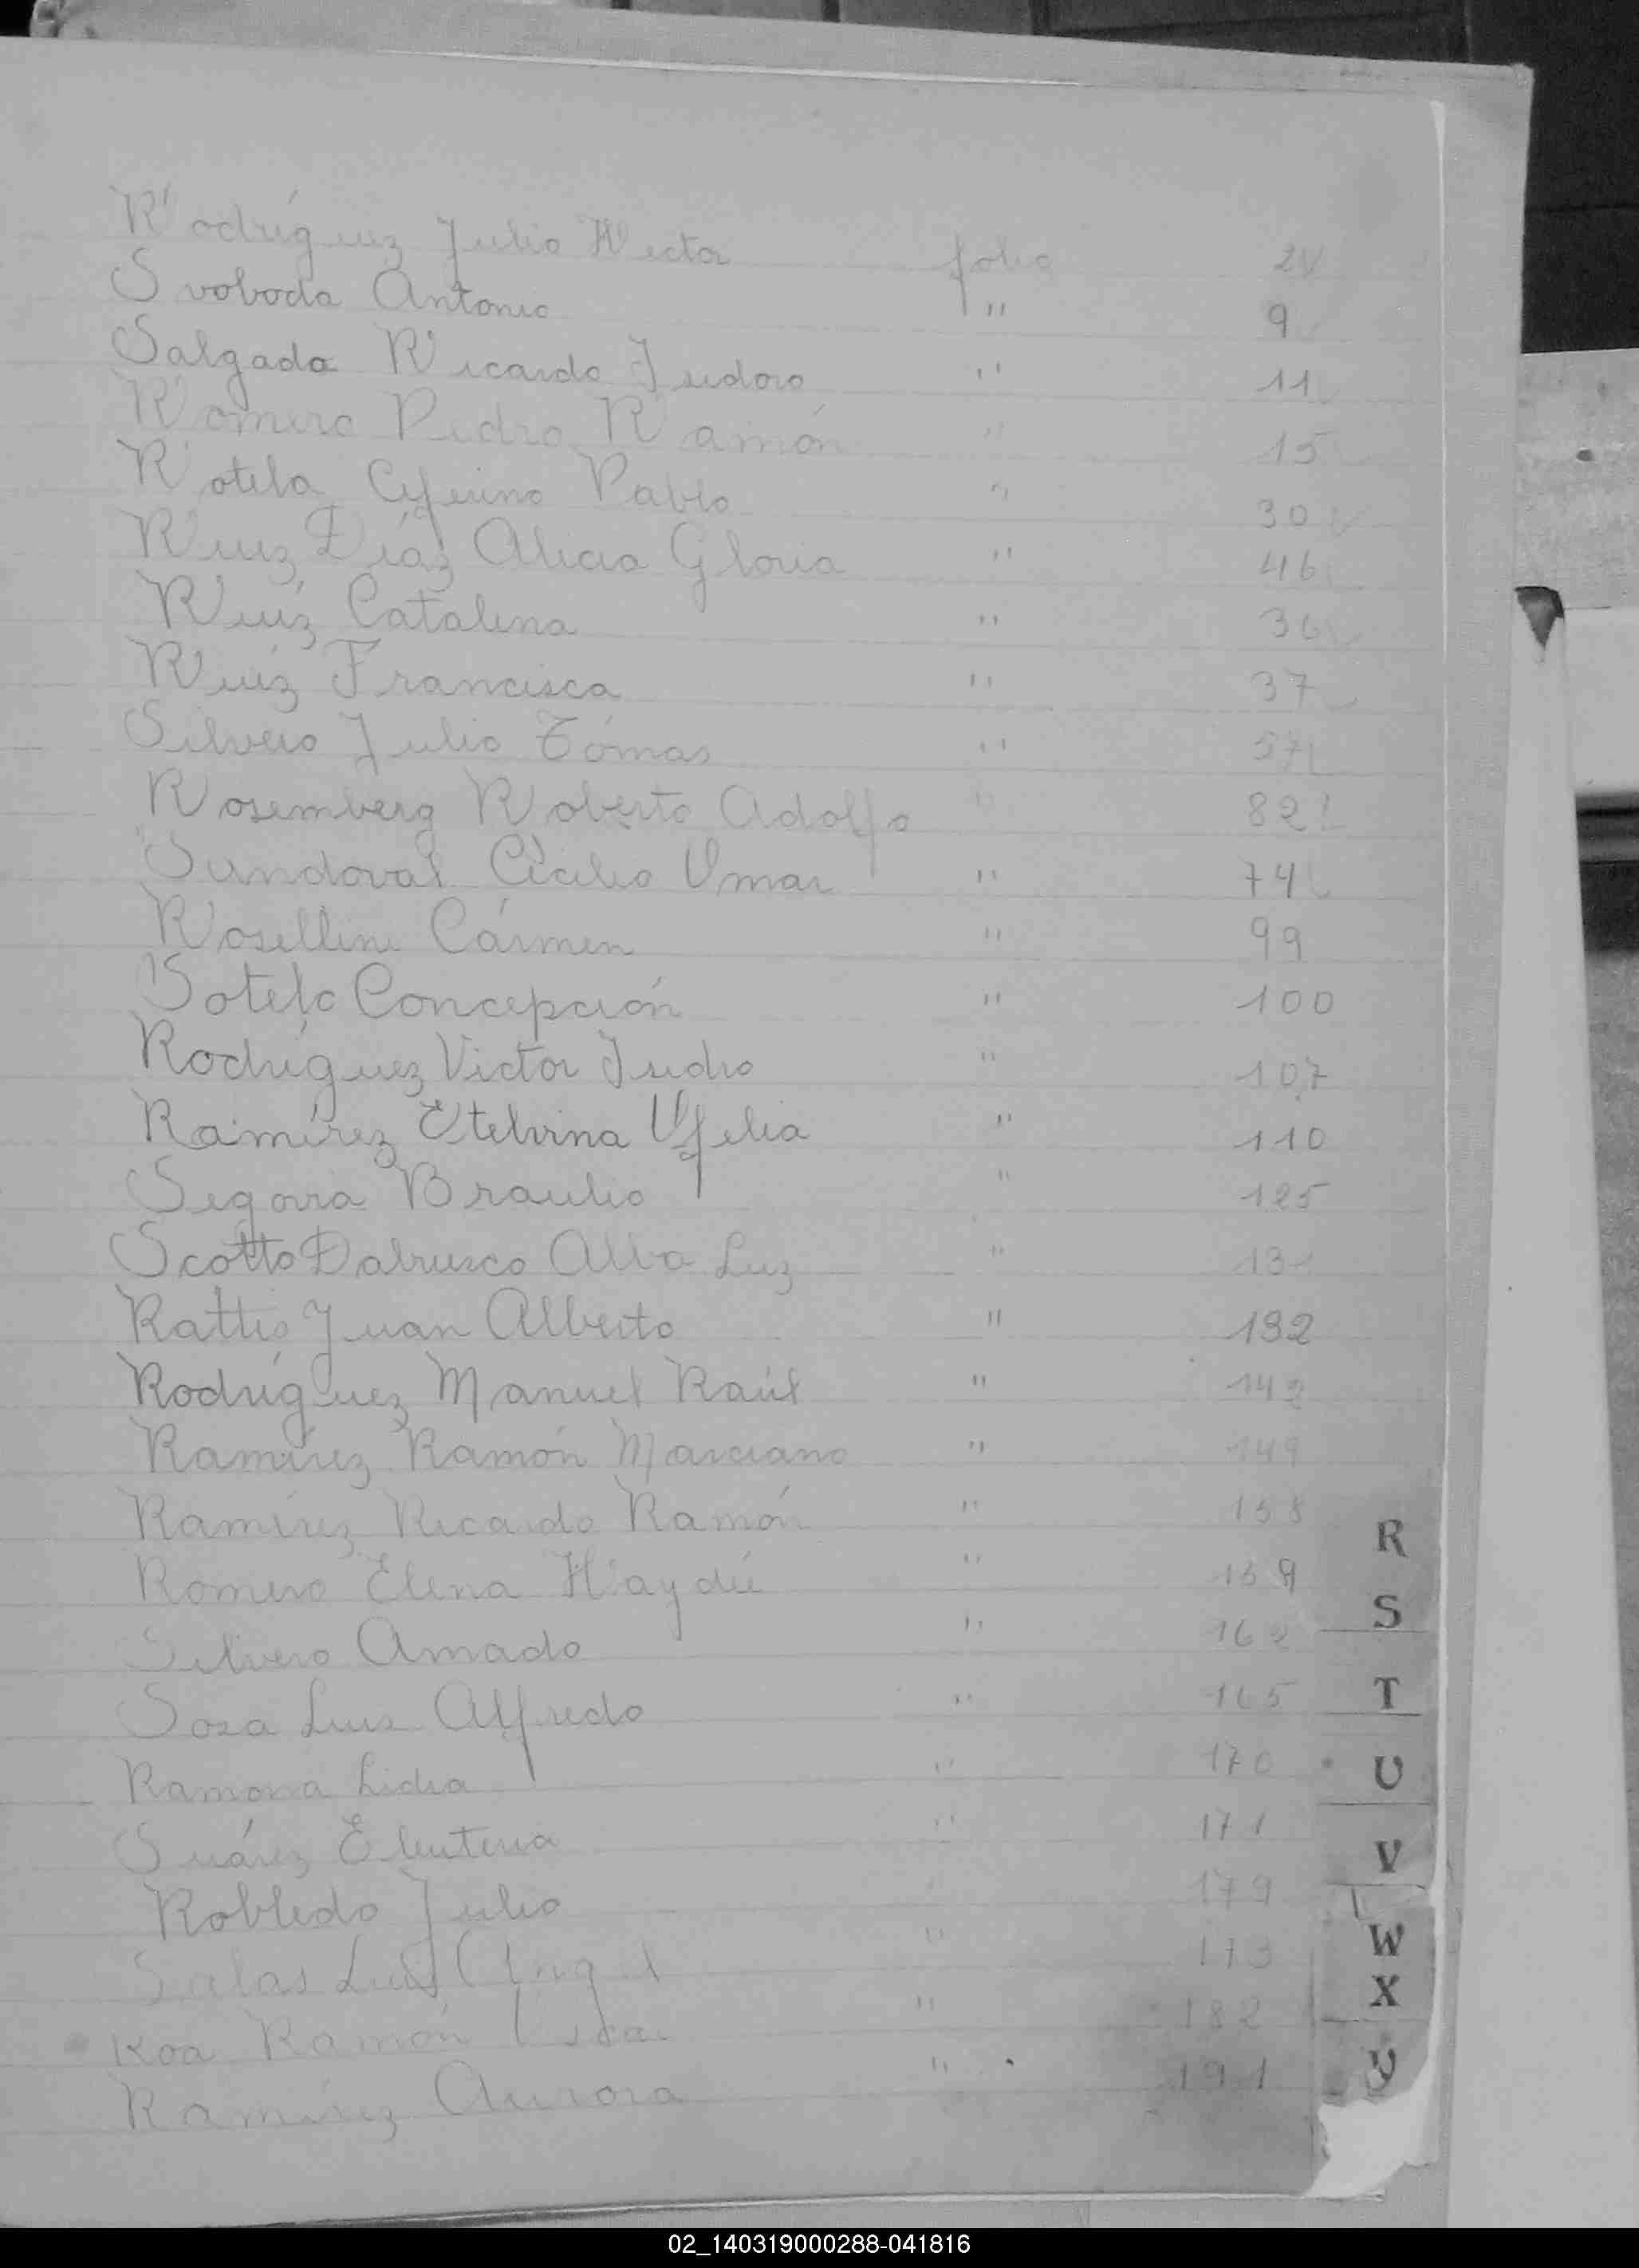 Rodríguez Julio Hector folio 2
Svoboda Antonio " 9
Salgado Ricardo Isidoro " 11
Romero Pedro Ramón " 15
Rotela Ceferino Pablo " 30
Ruiz Díaz Alicia Gloria " 46
Ruíz Catalina " 36
Ruíz Francisca " 37
Silvero Julio Tómas " 57
Rosemberg Roberto Adolfo " 82
Sandoval Cecilio Omar " 74
Rosellini Cármen " 99
Sotelo Concepción " 100
Rodríguez Victor Isidro " 107
Ramírez Etelvina Ofelia " 110
Segovia Braulio " 125
Scotto Dabrusco Alba Luz " 131
Rattio Juan Alberto " 132
Rodríguez Manuel Raúl " 142
Ramírez Ramón Marciano " 149
Ramírez Ricardo Ramón " 158
Romero Elena Haydée " 159
Silvero Amado " 162
Sosa Luis Alfredo " 165
Ramona Lidia " 170
Suárez Eleuteria " 171
Robledo Julio " 179
Salas Luis Angel " 173
Roa Ramón " 182
Ramírez Aurora " 191
R
S
T
U
V
W
X
Y
02_140319000288-041816